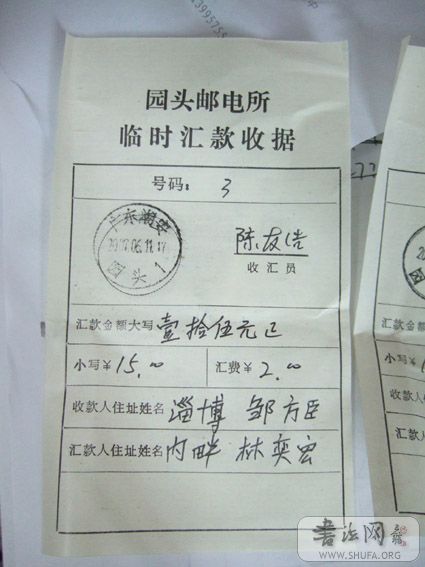 3995755
园头邮电所
临时汇款收据
号码: 3
广东潮安
2007.06.11.17
园头 1
陈友浩
收汇员
汇款金额大写 壹拾伍元正
小写¥15.00 汇费¥2.00
收款人住址姓名 淄博 邹方臣
汇款人住址姓名 内畔 林奕宏
书法网
WWW.SHUFA.ORG